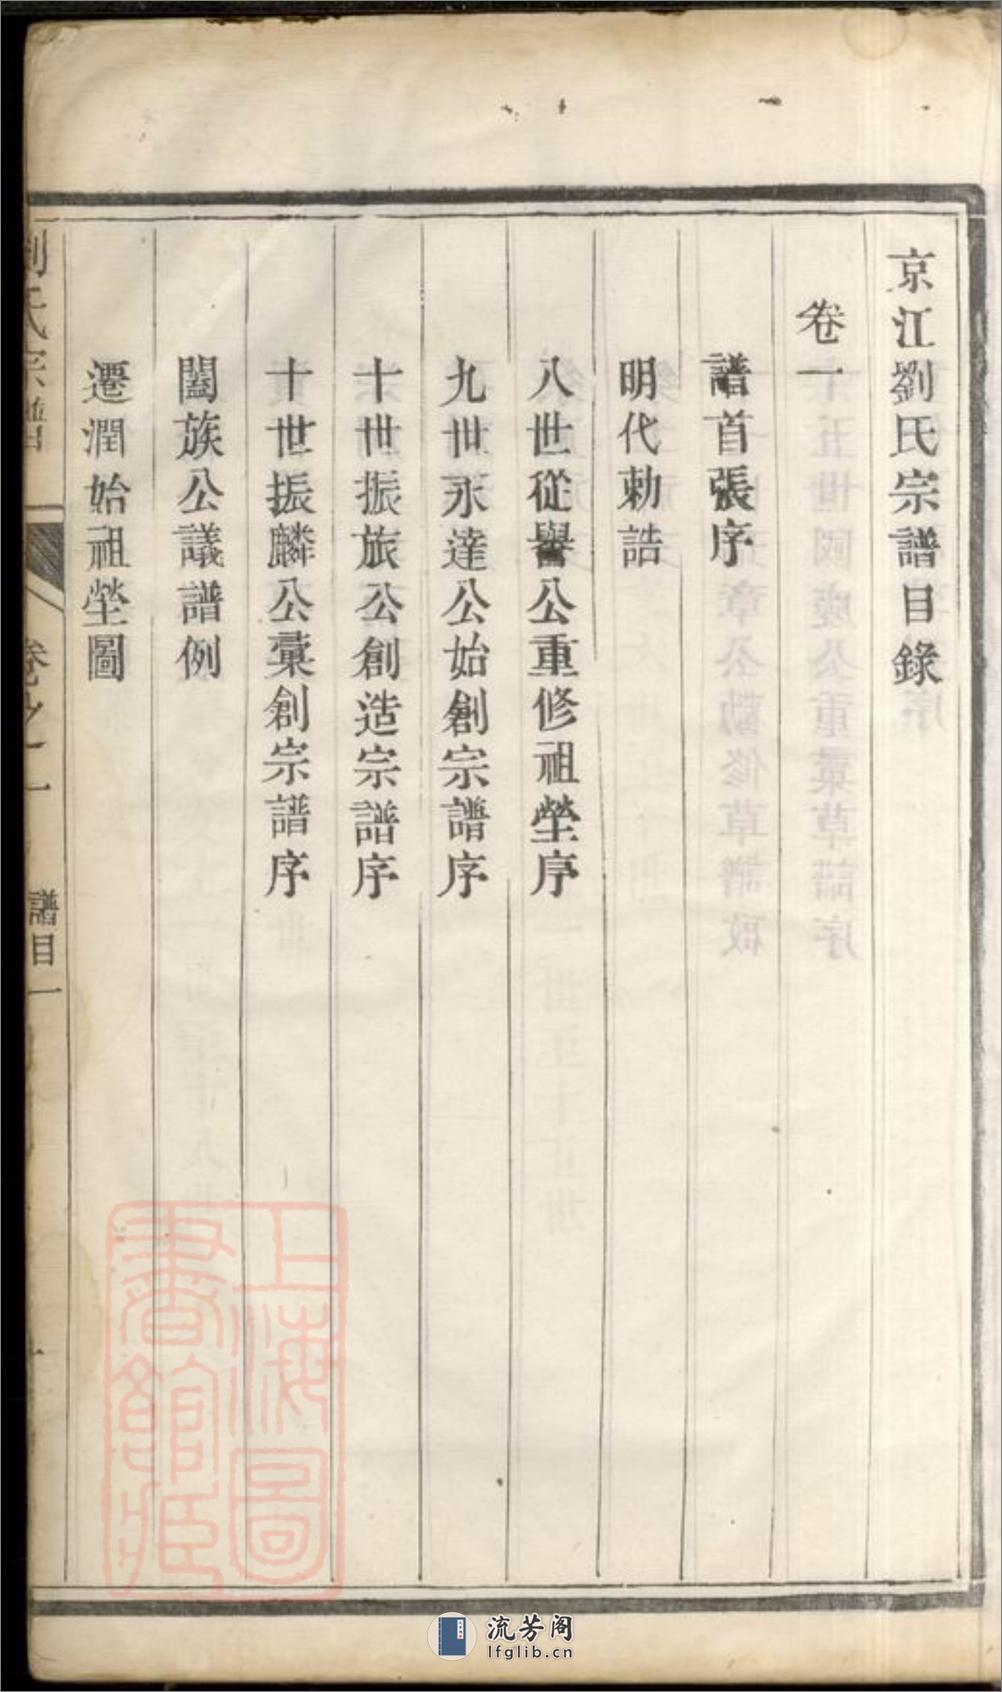 京江劉氏宗譜目錄
卷一
譜首張序
明代勅誥
八世從譽公重修祖塋序
九世永達公始創宗譜序
十世振旅公創造宗譜序
十世振麟公彙創宗譜序
闔族公議譜例
遷潤始祖塋圖
劉氏宗譜
卷之一
譜目一
上海圖書館藏
流芳阁
lfglib.cn